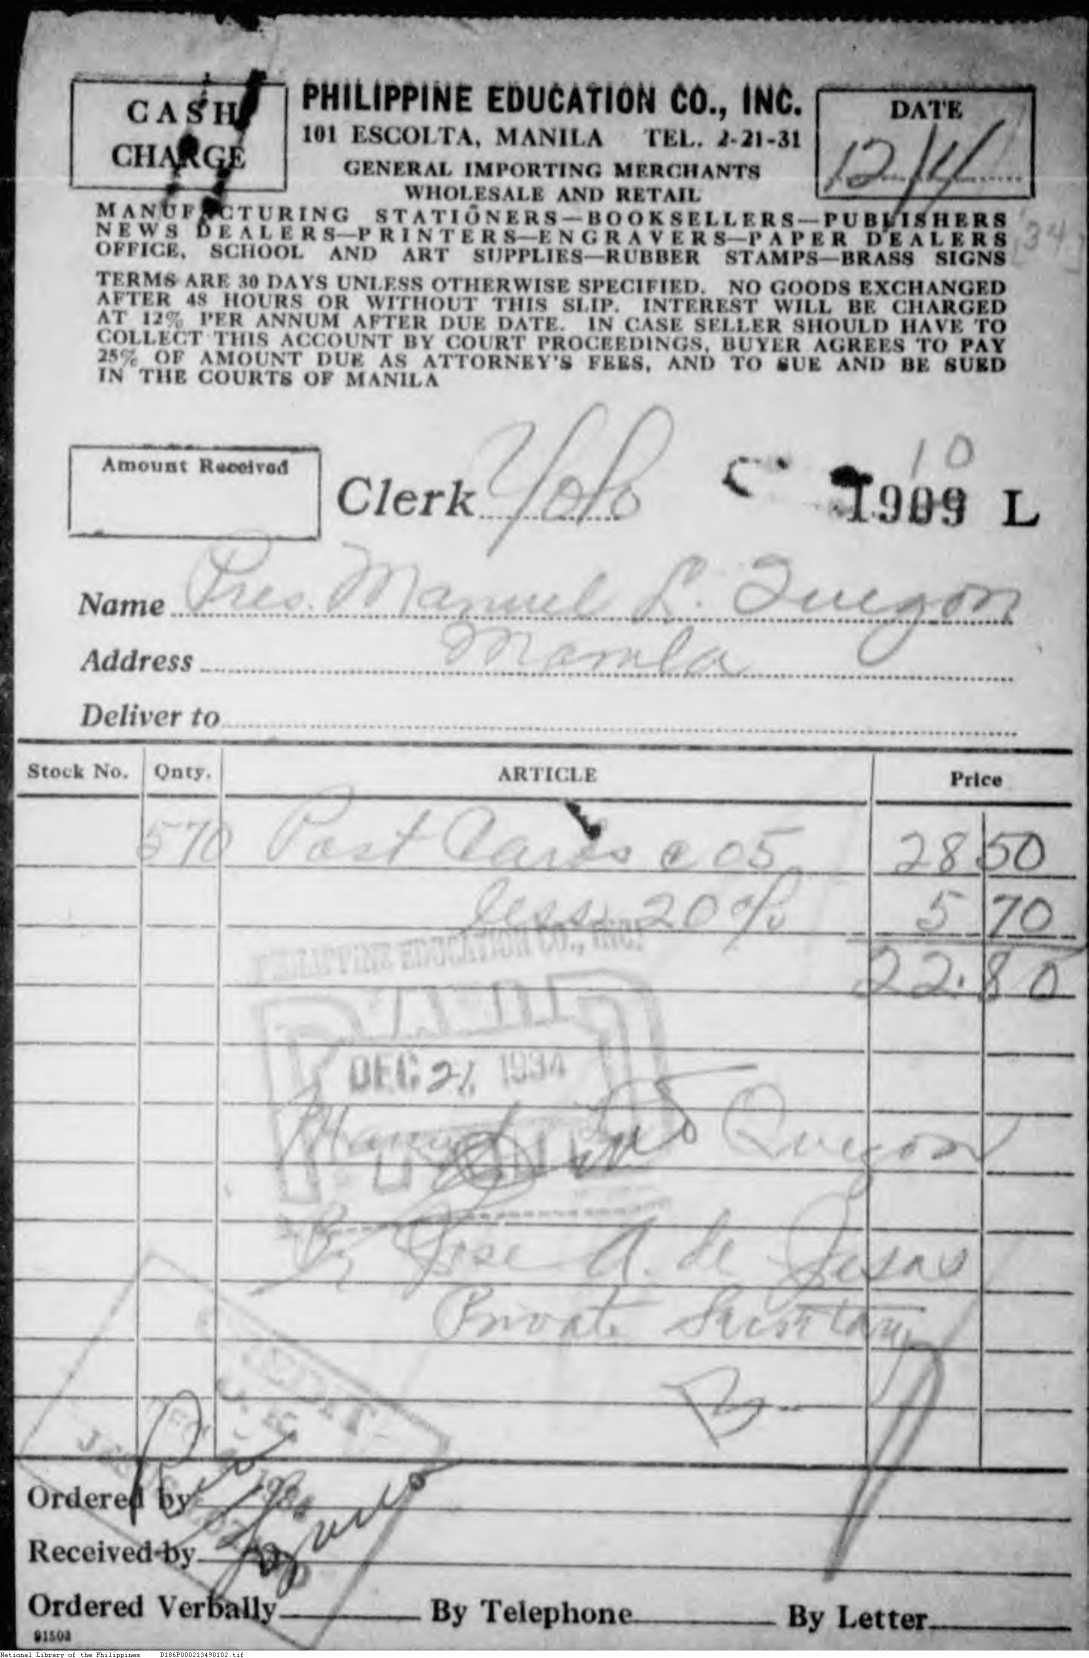 CASH
CHARGE
PHILIPPINE EDUCATION CO., INC.
101 ESCOLTA, MANILA TEL. 2-21-31
GENERAL IMPORTING MERCHANTS
WHOLESALE AND RETAIL
DATE
12/4/
34
MANUFACTURING STATIONERS—BOOKSELLERS—PUBLISHERS
NEWS DEALERS—PRINTERS—ENGRAVERS—PAPER DEALERS
OFFICE, SCHOOL AND ART SUPPLIES—RUBBER STAMPS—BRASS SIGNS
TERMS ARE 30 DAYS UNLESS OTHERWISE SPECIFIED. NO GOODS EXCHANGED
AFTER 48 HOURS OR WITHOUT THIS SLIP. INTEREST WILL BE CHARGED
AT 12% PER ANNUM AFTER DUE DATE. IN CASE SELLER SHOULD HAVE TO
COLLECT THIS ACCOUNT BY COURT PROCEEDINGS, BUYER AGREES TO PAY
25% OF AMOUNT DUE AS ATTORNEY'S FEES, AND TO SUE AND BE SUED
IN THE COURTS OF MANILA
Amount Received
Clerk
10
1909 L
Name Pres. Manuel L. Quezon
Address Manila
Deliver to
Stock No. Qnty. ARTICLE Price
570 Post Cards @ 05 28 50
less 20% 5 70
22.80
PHILIPPINE EDUCATION CO., INC.
PAID
DEC 21 1934
Manuel Quezon
By Jose A. de Jesus
Private Secretary
Ordered by
Received by
Ordered Verbally By Telephone By Letter
91503
National Library of the Philippines D186P000213490102.tif